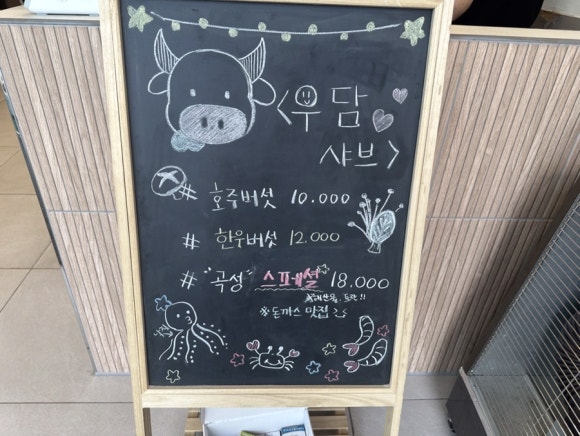 <우담
샤브>
# 호주버섯 10.000
# 한우버섯 12.000
# "곡성" 스페셜 18.000
※해산물, 토란!!
※돈까스 맛집